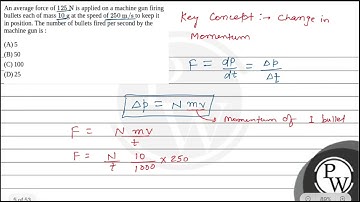 An average force of 125 N is applied on a machine gun firing
bullets each of mass 10 g at the speed of 250 m/s to keep it
in position. The number of bullets fired per second by the
machine gun is :
(A) 5
(B) 50
(C) 100
(D) 25
Key Concept :→ Change in
Momentum
F = dp/dt = Δp/Δt
Δp = N mv
momentum of 1 bullet
F = N mv/t
F = N/t 10/1000 × 250
PW